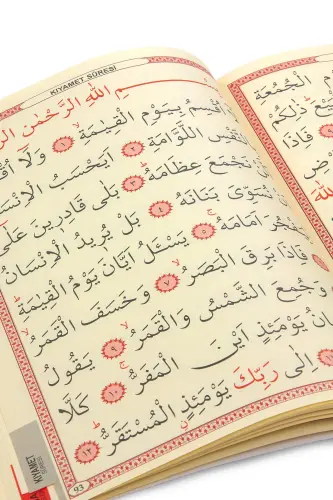 KIYAMET SÛRESİ
ـمِ اللهِ الرَّحْمٰنِ الرَّ
اُقْسِمُ بِيَوْمِ الْقِيٰمَةِۙ ١ وَلَٓا اُقْـ
النَّفْسِ اللَّوَّامَةِ ٢ اَيَحْسَبُ الْاِنْسَا
نَجْمَعَ عِظَامَهُۜ ٣ بَلٰى قَادِرٖينَ عَلٰٓى
نُسَوِّىَ بَنَانَهُ ٤ بَلْ يُرٖيدُ الْاِنْسَانُ
ـفْجُرَ اَمَامَهُۚ ٥ يَسْـَٔلُ اَيَّانَ يَوْمُ الْقِيٰمَةِۜ
فَاِذَا بَرِقَ الْبَصَرُۙ ٧ وَخَسَفَ الْقَمَرُۙ
وَجُمِعَ الشَّمْسُ وَالْقَمَرُۙ ٩ يَقُولُ
ـسَانُ يَوْمَئِذٍ اَيْنَ الْمَفَرُّۚ ١٠ كَلَّا
اِلٰى رَبِّكَ يَوْمَئِذٍۨ الْمُسْتَقَرُّۜ ١٢
93
KIYAMET
SÛRESİ
الْجُمُعَةِ
ذٰلِكُمْ
فَاِذَا
اللهِ